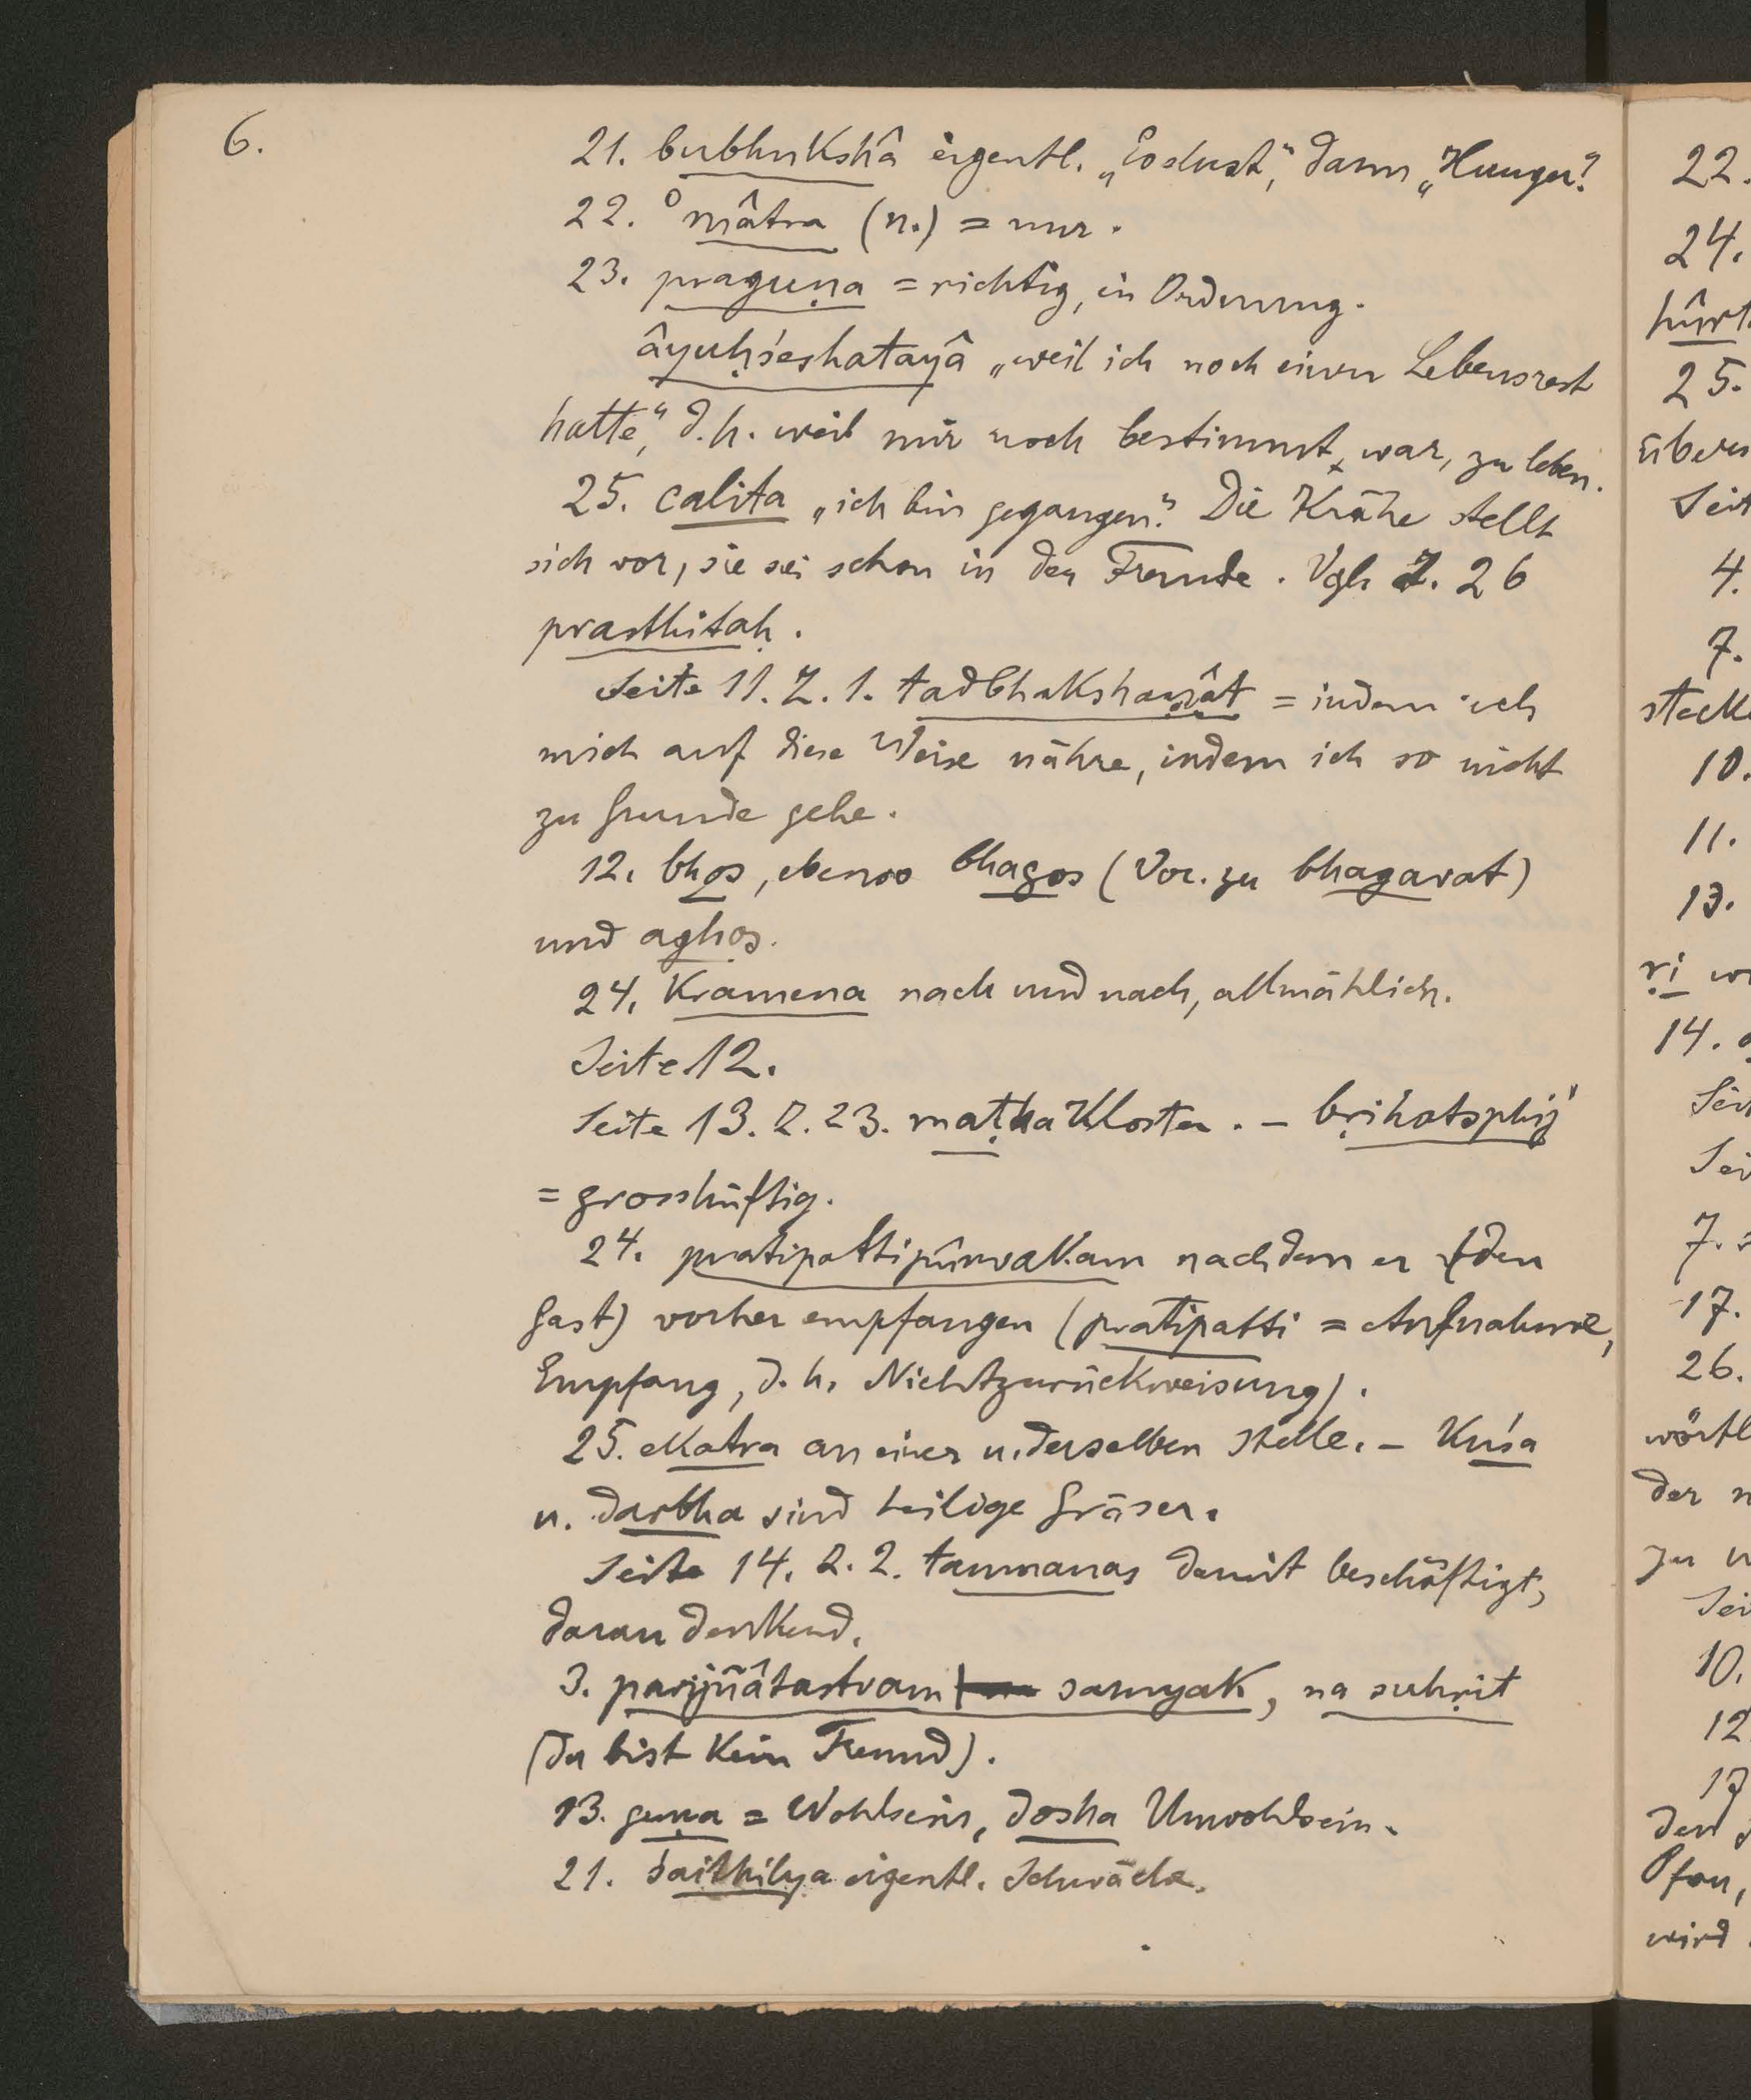 6.
21. bubhukshâ eigentl. „Esslust“, dann „Hunger“.
22. °mâtra (n.) = nur.
23. praguṇa = richtig, in Ordnung.
âyuḥśeshatayâ „weil ich noch einen Lebensrest
hatte“, d. h. weil mir noch bestimmt war, zu leben.
25. calita „ich bin gegangen“. Die Krähe stellt
sich vor, sie sei schon in der Fremde. Vgl. Z. 26
prasthitaḥ.
Seite 11. Z. 1. tadbhakshaṇât = indem ich
mich auf diese Weise nähre, indem ich so nicht
zu Grunde gehe.
12. bhos, ebenso bhagos (Voc. zu bhagavat)
und aghos.
24. Kramena nach und nach, allmählich.
Seite 12.
Seite 13. Z. 23. maṭha Kloster. – bṛihatsphij
= grosshüftig.
24. pratipattipûrvakam nachdem er (den
Gast) vorher empfangen (pratipatti = Aufnahme,
Empfang, d. h. Nichtzurückweisung).
25. ekatra an einer u. derselben Stelle. – Kuśa
u. darbha sind heilige Gräser.
Seite 14. Z. 2. tanmanas damit beschäftigt,
daran denkend.
3. parijñâtastvam samyak, na suhṛit
(du bist kein Freund).
13. guṇa = Wohlsein, dosha Unwohlsein.
21. śaithilya eigentl. Schwäche.
22.
24.
25.
4.
7.
10.
11.
13.
ṛi
14.
7.
17.
26.
der
zu
10.
12
17
wird